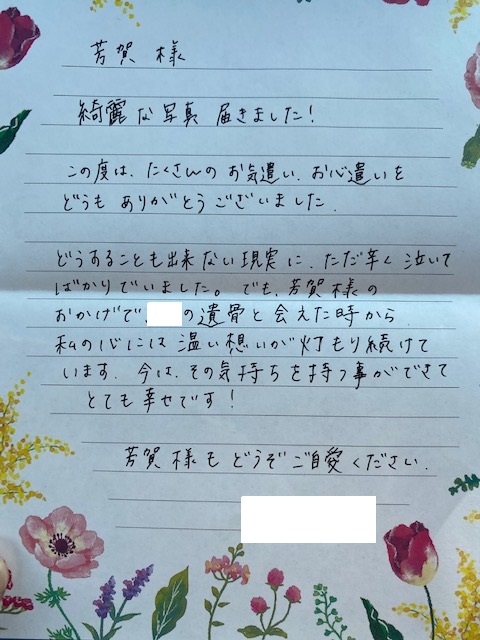 芳賀 様
綺麗な写真 届きました!
この度は、たくさんの お気遣い、お心遣いを
どうも ありがとう ございました.
どうすることも出来ない現実に、ただ辛く 泣いて
ばかりでいました。でも、芳賀様の
おかげで、 の遺骨と 会えた時から、
私の心には 温い想いが灯もり続けて
います. 今は、その気持ちを持つ事ができて
とても 幸せです!
芳賀 様も どうぞ ご自愛ください.